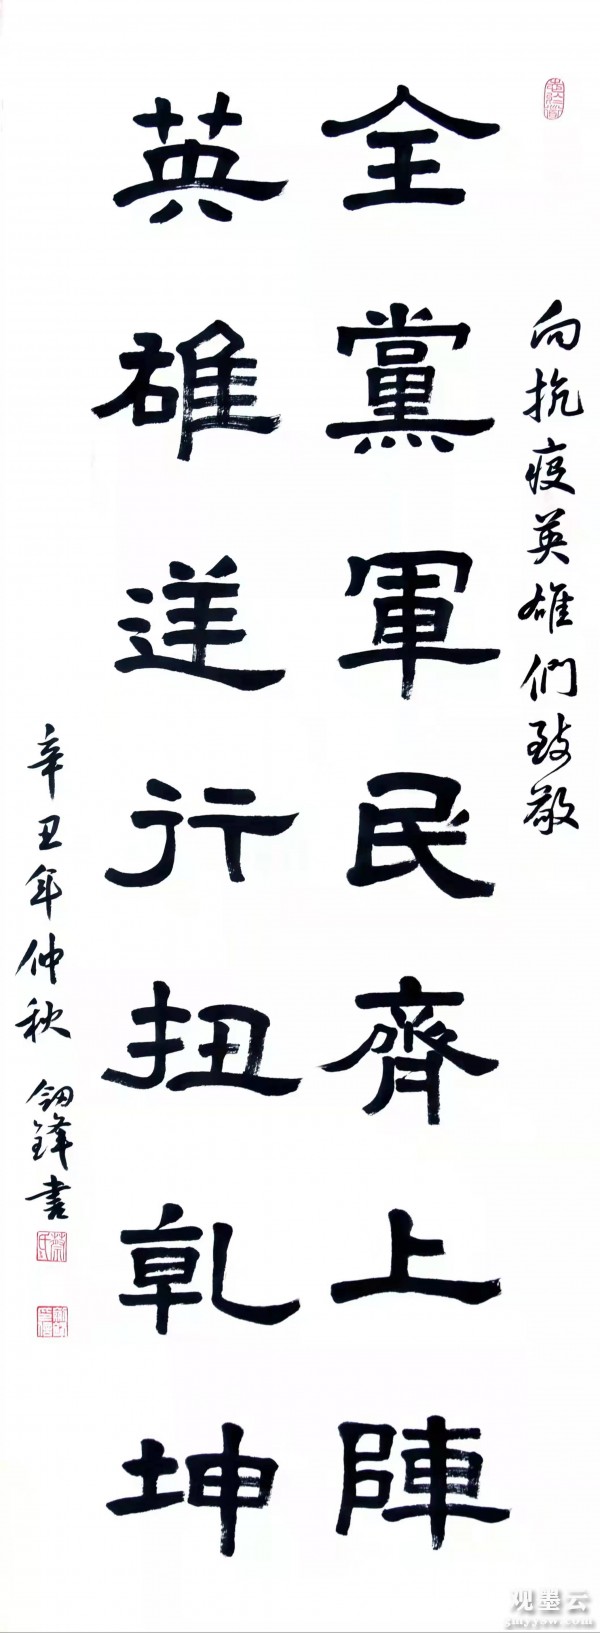 向抗疫英雄們致敬
全黨軍民齊上陣
英雄逆行扭乾坤
辛丑年仲秋 釼鋒書
观墨云